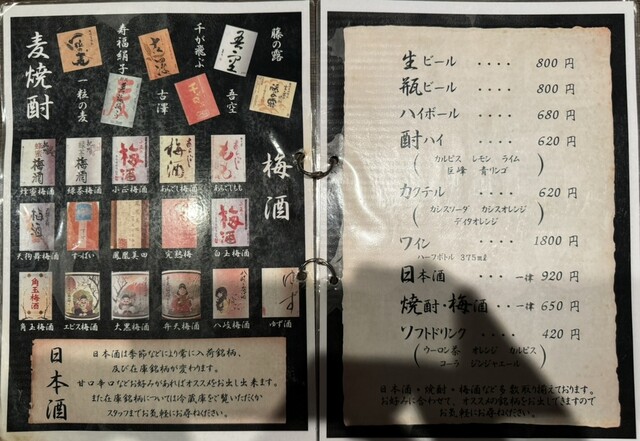 麦焼酎
藤の露
千が飛ぶ
寿福絹子
吾空
古澤
一粒の麦
梅酒
蜂蜜梅酒
緑茶梅酒
小正梅酒
あんどし梅酒
あんどしもも
天狗舞梅酒
すっぱい
鳳凰美田
完熟梅
白玉梅酒
角玉梅酒
エビス梅酒
大黒梅酒
弁天梅酒
八岐梅酒
ゆず酒
日本酒
日本酒は季節などにより常に入荷銘柄、
及び在庫銘柄が変わります。
甘口辛口などお好みがあればオススメをお出し出来ます。
また在庫銘柄については冷蔵庫をご覧いただくか
スタッフまでお気軽にお尋ねください。
生ビール ････ 800 円
瓶ビール ････ 800 円
ハイボール ････ 680 円
酎ハイ ････ 620 円
(カルピス レモン ライム
巨峰 青リンゴ)
カクテル ････ 620 円
(カシスソーダ カシスオレンジ
ディタオレンジ)
ワイン ････ 1800 円
ハーフボトル 375ml
日本酒 ････一律 920 円
焼酎・梅酒 ････一律 650 円
ソフトドリンク ････ 420 円
(ウーロン茶 オレンジ カルピス
コーラ ジンジャエール)
日本酒・焼酎・梅酒など多数取り揃えております。
お好みに合わせて、オススメの銘柄をお出しできますので
お気軽にお尋ねください。